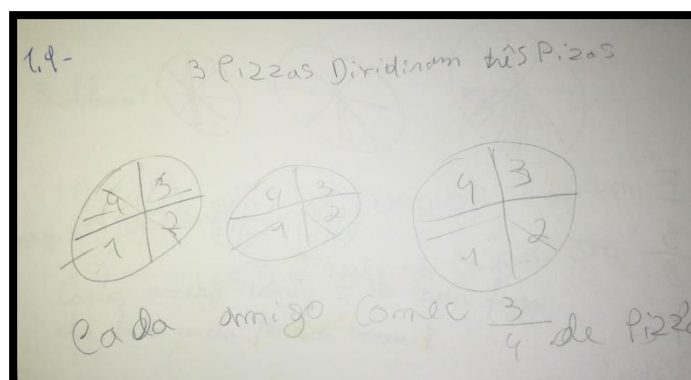 1.1- 3 Pizzas Dividiram três Pizas
4 3 4 3 4 3
1 2 1 2 1 2
Cada amigo comeu 3/4 de Pizza